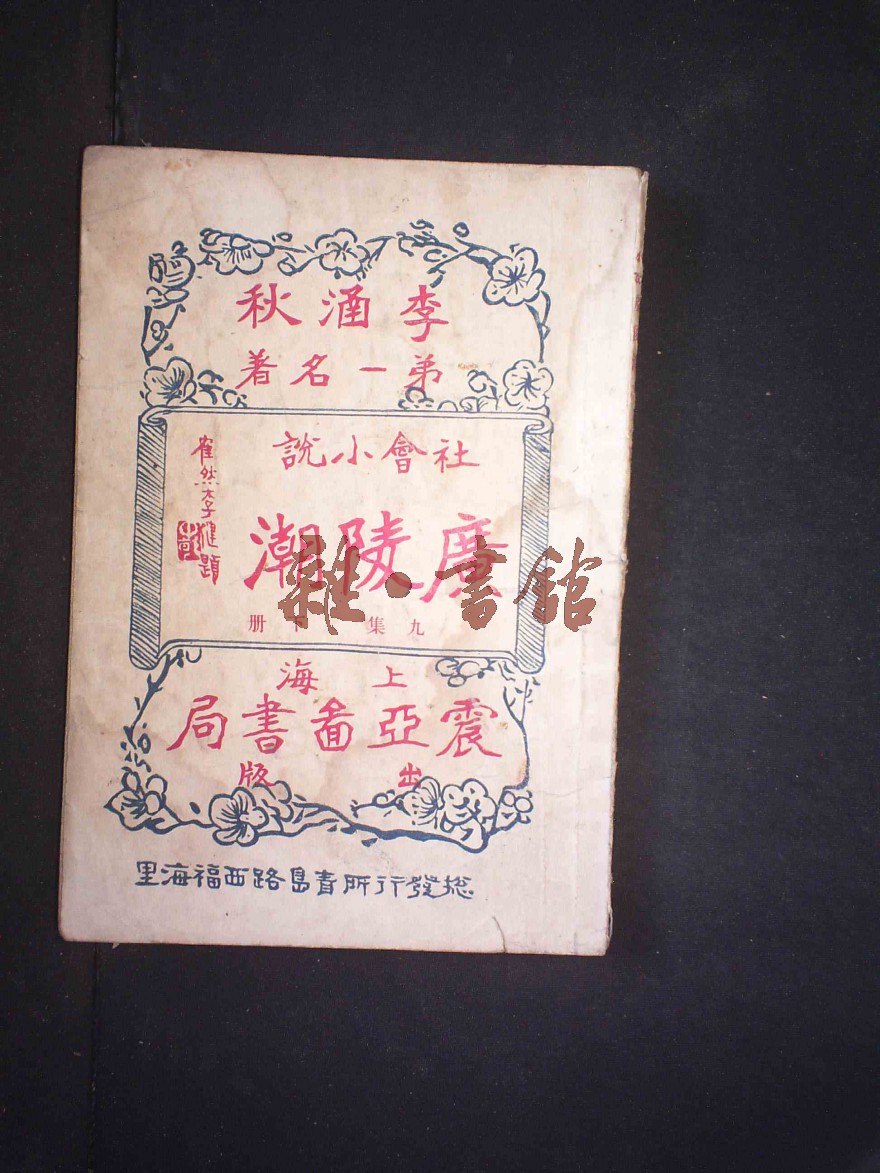 李涵秋
弟一名著
社會小說
廣陵潮
九集 下册
題
上海
震亞圖書局
出版
總發行所青島路西福海里
雜·書館